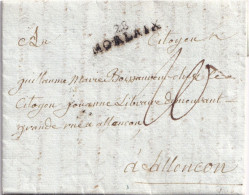 28
MORLAIX
Au Citoyen
Guillaume Marie
Citoyen Jouanne Libraire demeurant
grande rue a allencon
à Allencon